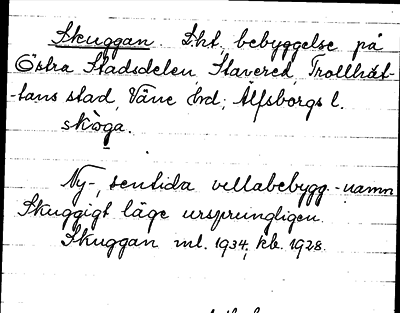 Skuggan. Lht, bebyggelse på
Östra Stadsdelen, Stavered, Trollhät-
-tans stad, Väne hrd; Älfsborgs l.
skòga.
Ny-, sentida villabebygg.-namn
Skuggigt läge ursprungligen.
Skuggan ml. 1934; kb. 1928.